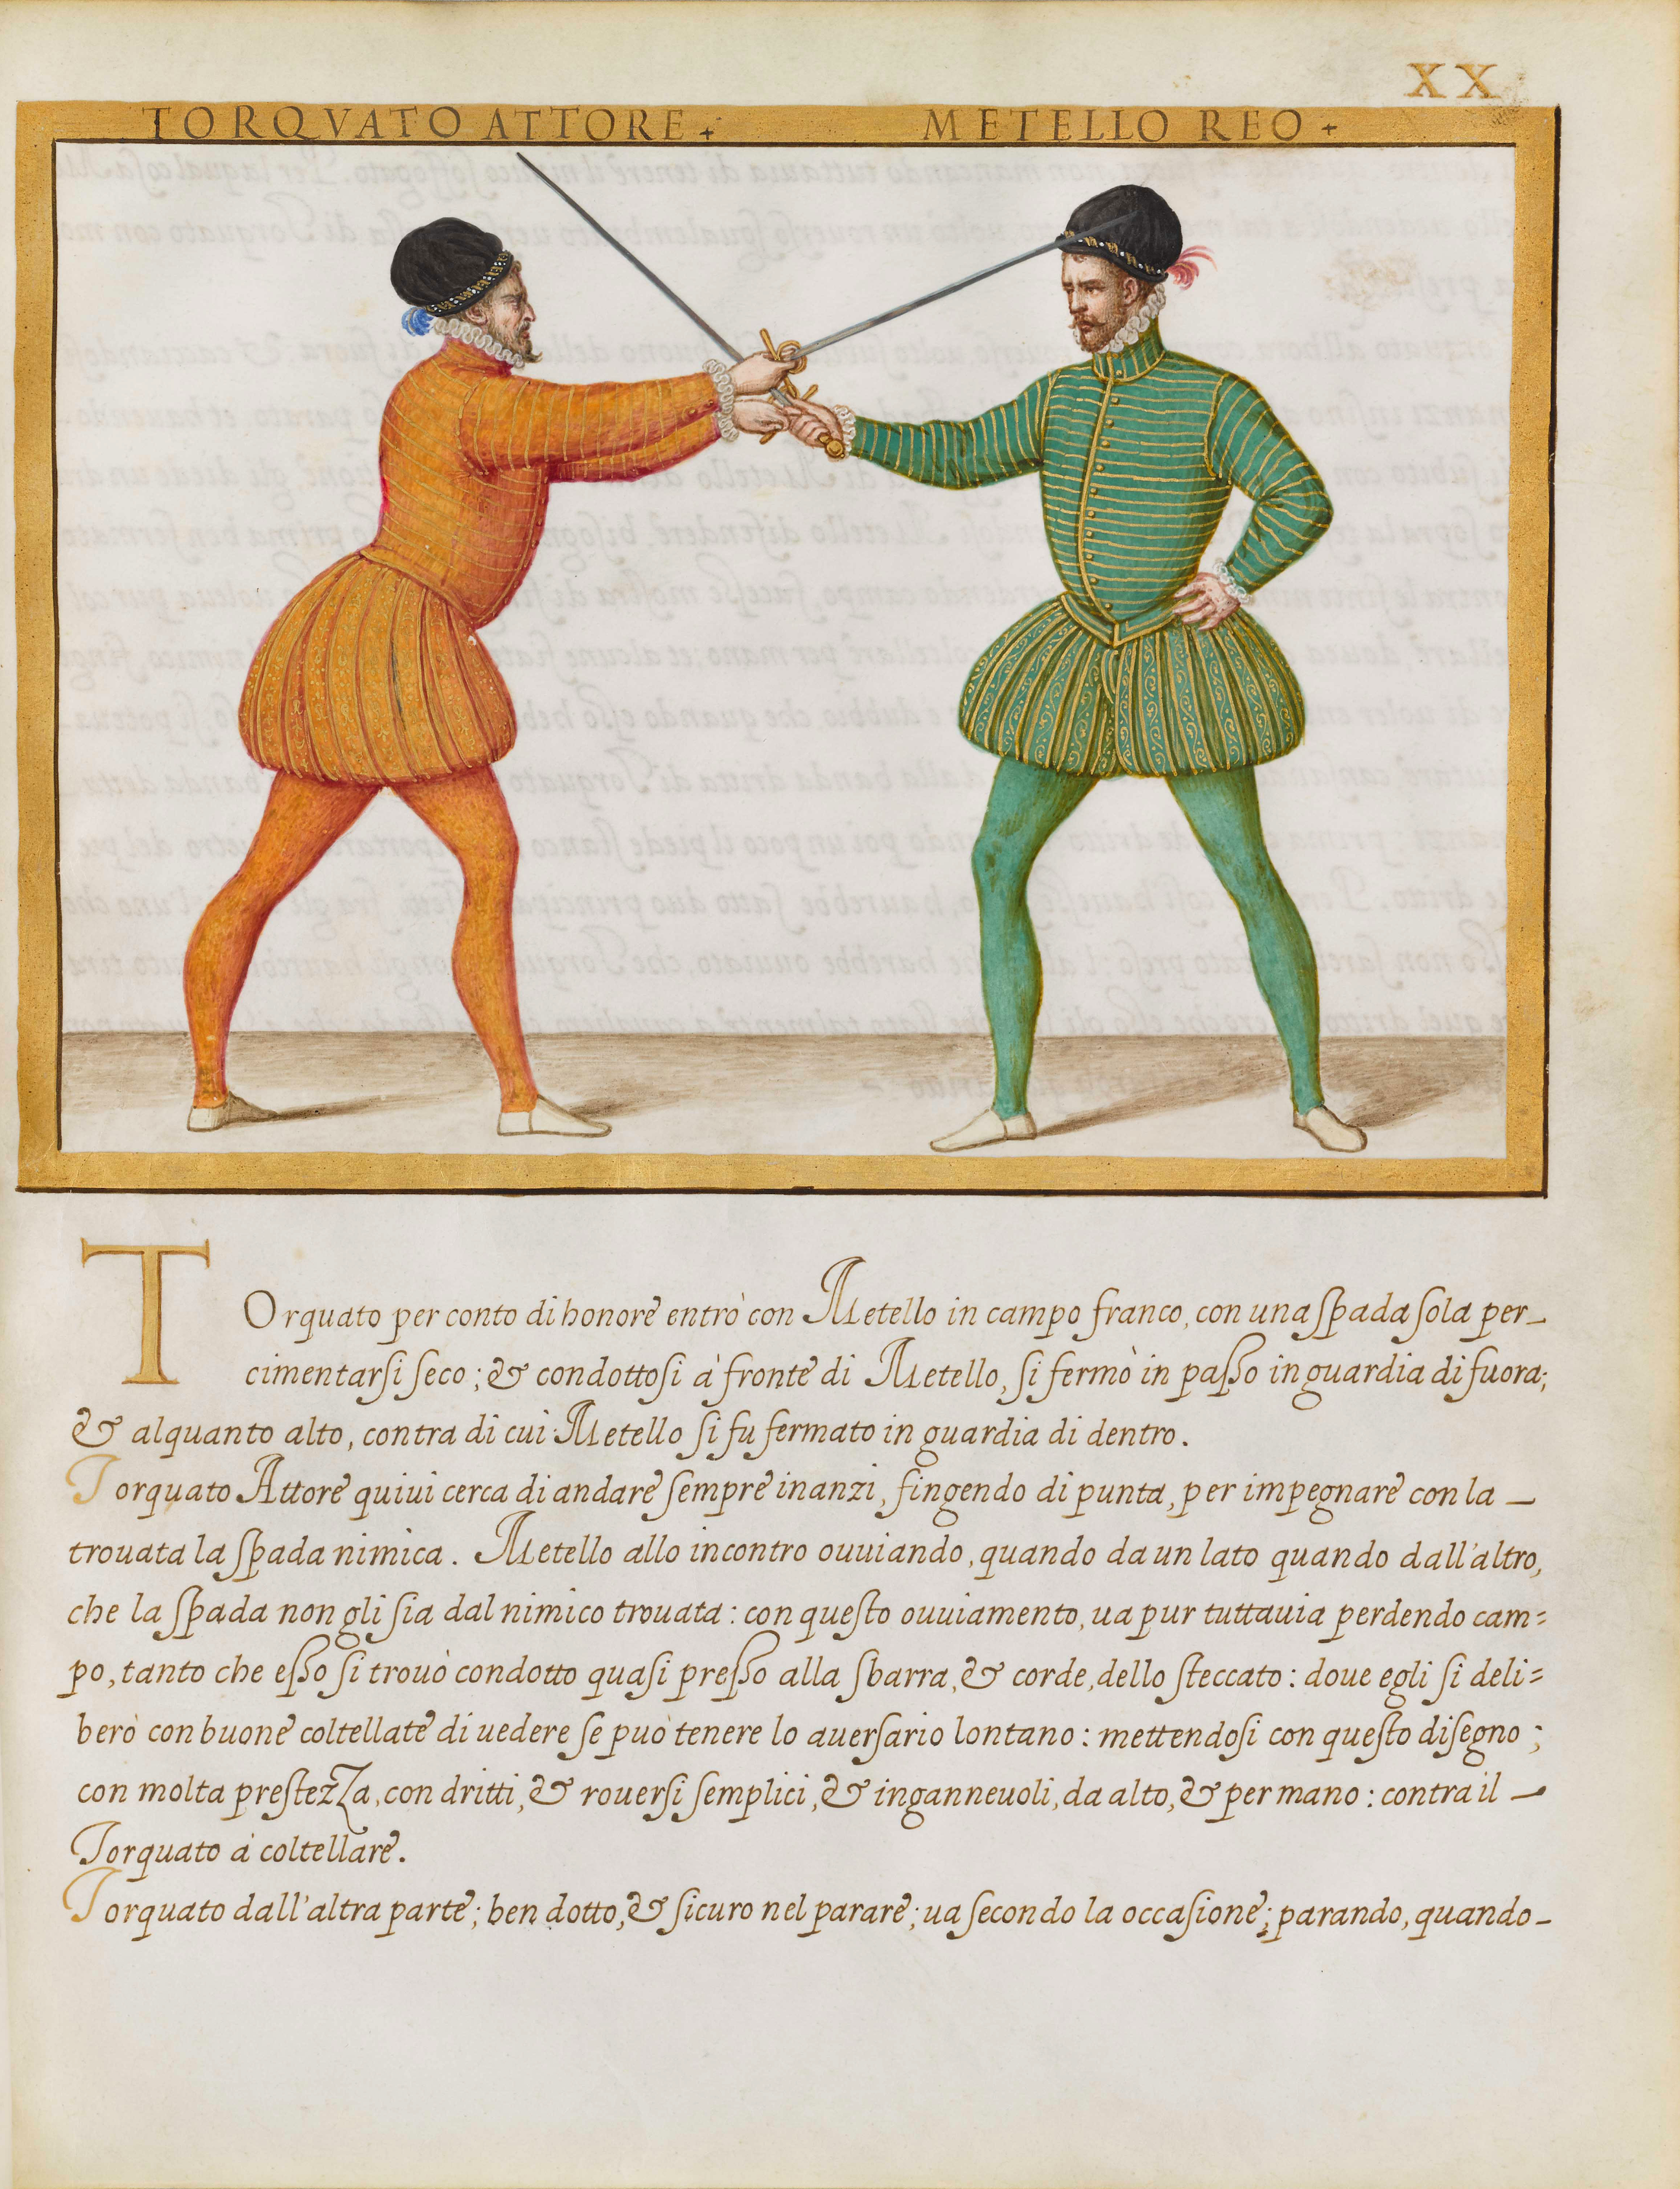 XX
TORQVATO ATTORE + METELLO REO +
TOrquato per conto di honore entrò con Metello in campo franco, con una spada sola per_
cimentarsi seco; & condottosi à fronte di Metello, si fermò in passo in guardia di fuora;
& alquanto alto, contra di cui Metello si fu fermato in guardia di dentro.
Torquato Attore quiui cerca di andare sempre inanzi, fingendo di punta, per impegnare con la _
trouata la spada nimica. Metello allo incontro ouuiando, quando da un lato quando dall'altro,
che la spada non gli sia dal nimico trouata: con questo ouuiamento, ua pur tuttauia perdendo cam=
po, tanto che esso si trouò condotto quasi presso alla sbarra, & corde, dello steccato: doue egli si deli=
berò con buone coltellate di uedere se può tenere lo auersario lontano: mettendosi con questo disegno;
con molta prestezza, con dritti, & rouersi semplici, & inganneuoli, da alto, & per mano: contra il _
Torquato à coltellare.
Torquato dall'altra parte; ben dotto, & sicuro nel parare; ua secondo la occasione; parando, quando_